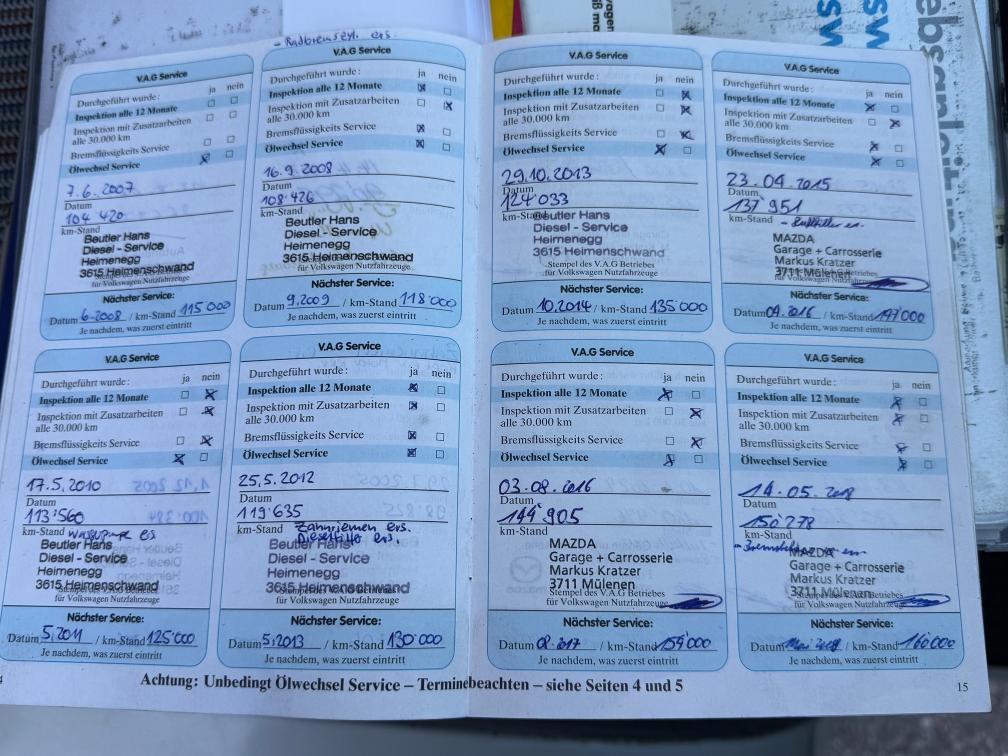 - Radbremszyl. ers.
V.A.G Service
Durchgeführt wurde:
ja nein
Inspektion alle 12 Monate
Inspektion mit Zusatzarbeiten
alle 30.000 km
Bremsflüssigkeits Service
Ölwechsel Service
7.6.2007
Datum
104 420
km-Stand
Beutler Hans
Diesel - Service
Heimenegg
3615 Heimenschwand
Nächster Service:
Datum 6-2008 / km-Stand 115'000
Je nachdem, was zuerst eintritt
V.A.G Service
Durchgeführt wurde:
ja nein
Inspektion alle 12 Monate
Inspektion mit Zusatzarbeiten
alle 30.000 km
Bremsflüssigkeits Service
Ölwechsel Service
16.9.2008
Datum
108'426
km-Stand
Beutler Hans
Diesel - Service
Heimenegg
3615 Heimenschwand
für Volkswagen Nutzfahrzeuge
Nächster Service:
Datum 9.2009 / km-Stand 118'000
Je nachdem, was zuerst eintritt
V.A.G Service
Durchgeführt wurde:
ja nein
Inspektion alle 12 Monate
Inspektion mit Zusatzarbeiten
alle 30.000 km
Bremsflüssigkeits Service
Ölwechsel Service
29.10.2013
Datum
124'033
km-Stand
Beutler Hans
Diesel - Service
Heimenegg
3615 Heimenschwand
Stempel des V.A.G Betriebes
für Volkswagen Nutzfahrzeuge
Nächster Service:
Datum 10.2014 / km-Stand 135'000
Je nachdem, was zuerst eintritt
V.A.G Service
Durchgeführt wurde:
ja nein
Inspektion alle 12 Monate
Inspektion mit Zusatzarbeiten
alle 30.000 km
Bremsflüssigkeits Service
Ölwechsel Service
23.04.2015
Datum
137'951
km-Stand
MAZDA
Garage + Carrosserie
Markus Kratzer
3711 Mülenen
Nächster Service:
Datum 04.2016 / km-Stand 147'000
Je nachdem, was zuerst eintritt
V.A.G Service
Durchgeführt wurde:
ja nein
Inspektion alle 12 Monate
Inspektion mit Zusatzarbeiten
alle 30.000 km
Bremsflüssigkeits Service
Ölwechsel Service
17.5.2010
Datum
113'560
km-Stand
Beutler Hans
Diesel - Service
Heimenegg
3615 Heimenschwand
für Volkswagen Nutzfahrzeuge
Nächster Service:
Datum 5.2011 / km-Stand 125'000
Je nachdem, was zuerst eintritt
V.A.G Service
Durchgeführt wurde:
ja nein
Inspektion alle 12 Monate
Inspektion mit Zusatzarbeiten
alle 30.000 km
Bremsflüssigkeits Service
Ölwechsel Service
25.5.2012
Datum
119'635
km-Stand Zahnriemen ers.
Dieselfilter ers.
Beutler Hans
Diesel - Service
Heimenegg
3615 Heimenschwand
für Volkswagen Nutzfahrzeuge
Nächster Service:
Datum 5.2013 / km-Stand 130'000
Je nachdem, was zuerst eintritt
V.A.G Service
Durchgeführt wurde:
ja nein
Inspektion alle 12 Monate
Inspektion mit Zusatzarbeiten
alle 30.000 km
Bremsflüssigkeits Service
Ölwechsel Service
03.08.2016
Datum
144'905
km-Stand
MAZDA
Garage + Carrosserie
Markus Kratzer
3711 Mülenen
Stempel des V.A.G Betriebes
für Volkswagen Nutzfahrzeuge
Nächster Service:
Datum 08.2017 / km-Stand 154'000
Je nachdem, was zuerst eintritt
V.A.G Service
Durchgeführt wurde:
ja nein
Inspektion alle 12 Monate
Inspektion mit Zusatzarbeiten
alle 30.000 km
Bremsflüssigkeits Service
Ölwechsel Service
14.05.2018
Datum
150'278
km-Stand
MAZDA
Garage + Carrosserie
Markus Kratzer
3711 Mülenen
für Volkswagen Nutzfahrzeuge
Nächster Service:
Datum / km-Stand 160'000
Je nachdem, was zuerst eintritt
Achtung: Unbedingt Ölwechsel Service – Termine beachten – siehe Seiten 4 und 5
15